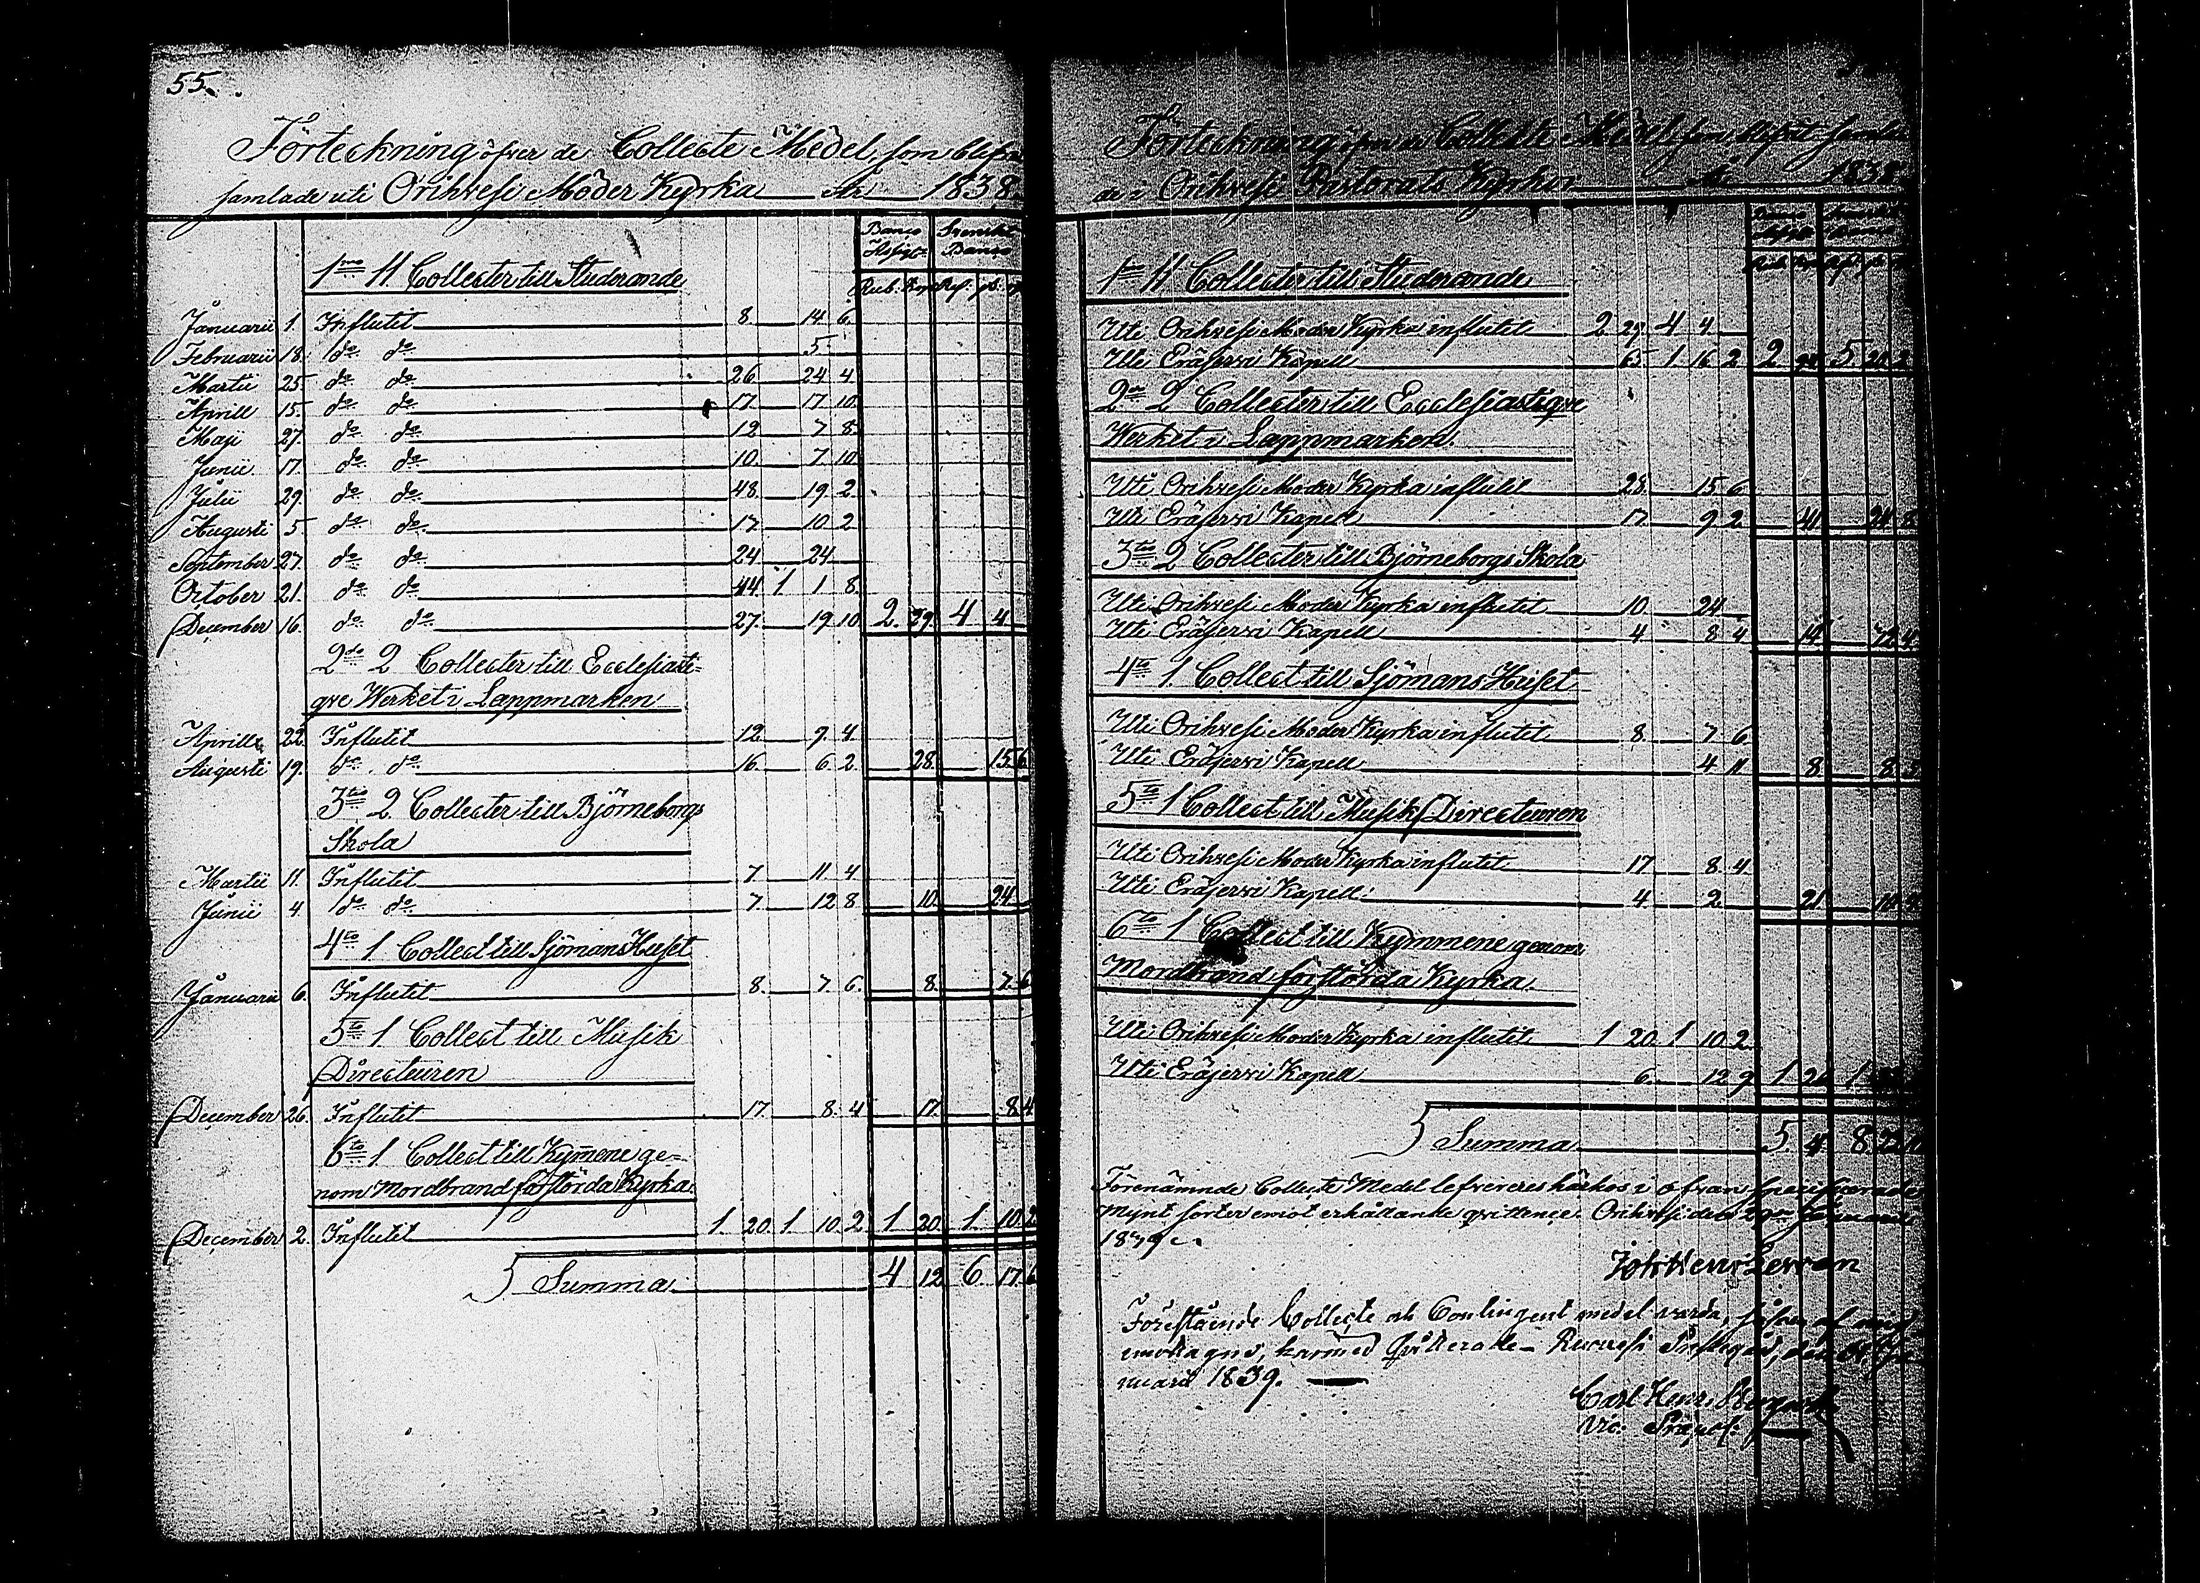 55.
Förteckning öfver de Collecte Medel, som blifvit
samlade uti Orihvesi Moder Kyrka År 1838
Banco Assign: Svenskt Banco
Rub. Kop. Rd. s. r
1mo 11 Collecter till Studerande
Januarii 1. Influtit 8. 14 6
Februarii 18. do do 5
Martii 25 do do 26 24 4
Aprill 15. do do 17. 17 10
Maji 27. do do 12 7 8
Junii 17. do do 10. 7 10
Julii 29. do do 48. 19 2
Augusti 5 do do 17. 10 2
September 27. do do 24 24
October 21. do do 44. 1 1 8
December 16. do do 27. 19 10 2. 29. 4 4
2do 2 Collecter till Ecclesiasti-
qve Werket i Lappmarken
Aprill 22. Influtit 12 9 4
Augusti 19. do do 16. 6 2 28. 15 6
3tio 2 Collecter till Björneborgs
Skola
Martii 11. Influtit 7. 11 4
Junii 4 do do 7. 12 8 10. 24
4to 1 Collect till Sjömans Huset
Januarii 6. Influtit 8. 7 6 8. 7 6
5to 1 Collect till Musik
Directeuren
December 26. Influtit 17. 8 4 17. 8 4
6to 1 Collect till Kymene ge-
nom Mordbrand förstörda Kyrka
December 2. Influtit 1. 20. 1 10 2 1 20. 1. 10 2
Summa 4 12 6 17 6
Förteckning öfver de Collecte Medel, som blifvit samla
de i Orihvesi Pastorats Kyrkor År 1838
1mo 11 Collecter till Studerande
Uti Orihvesi Moder Kyrka influtit 2 29. 4 4
Uti Eräjervi Kapell 65. 1. 16 2 2 94 5. 20 2
2do 2 Collecter till Ecclesiastiqve
Werket i Lappmarken
Uti Orihvesi Moder Kyrka influtit 28. 15 6
Uti Eräjervi Kapell 17. 9 2 24 8
3tio 2 Collecter till Björneborgs Skola
Uti Orihvesi Moder Kyrka influtit 10. 24
Uti Eräjervi Kapell 4. 8 4 14
4to 1 Collect till Sjömans Huset
Uti Orihvesi Moder Kyrka influtit 8. 7 6
Uti Eräjervi Kapell 4 11 8
5to 1 Collect till Musik Directeuren
Uti Orihvesi Moder Kyrka influtit 17 8 4
Uti Eräjervi Kapell 4. 2 21
6to 1 Collect till Kymmene genom
Mordbrand förstörda Kyrka
Uti Orihvesi Moder Kyrka influtit 1 20. 1 10 2
Uti Eräjervi Kapell 6. 12 9 1 26 1
Summa 5. 4 8
Förenämnde Collecte Medel lefvereras härhos i ofvan specificerade
Mynt sorter emot erhållande qvittence. Orihvesi den
1839
Joh Henr
Förestå­ende Collecte och Contingent medel varda, såsom af mig
emottagne, härmed qvitterade Ruovesi Prestegård, den
nuarii 1839.
Carl Henr.
Vic. Præpos.